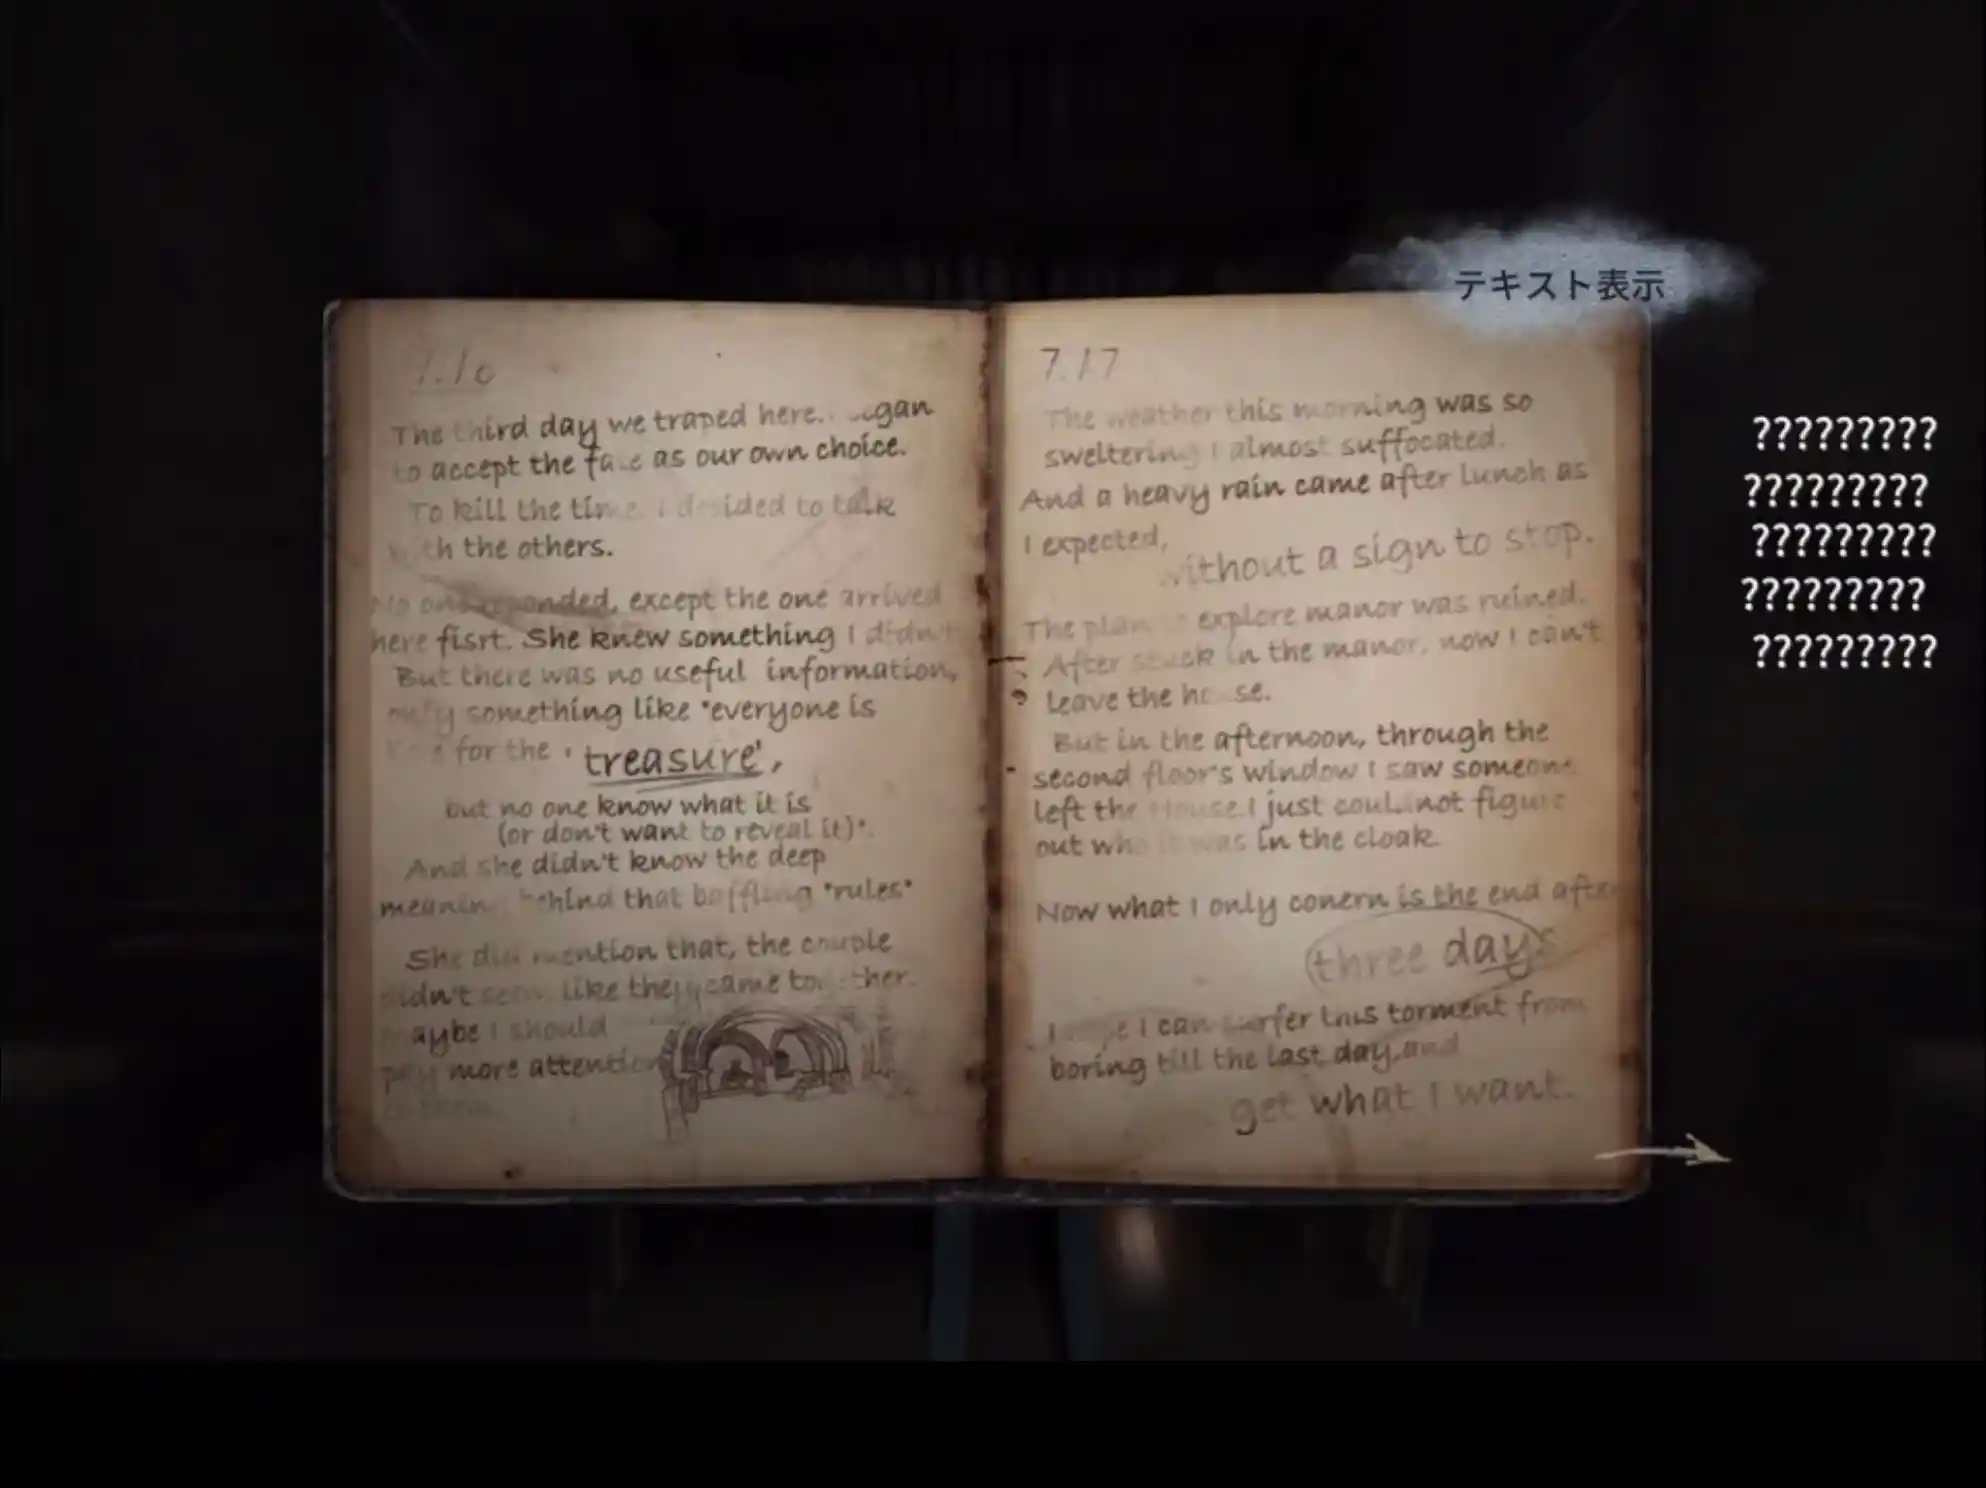 The third day we traped here.
to accept the as our own choice.
To kill the time I decided to talk
with the others.
No one responded, except the one arrived
here fisrt. She knew something I didn't
But there was no useful information,
only something like "everyone is
for the 'treasure',
but no one know what it is
(or don't want to reveal it)".
And she didn't know the deep
behind that baffling "rules"
She did mention that, the couple
didn't seem like they came together.
maybe I should
pay more attention
to them.
7.17
The weather this morning was so
sweltering I almost suffocated.
And a heavy rain came after lunch as
I expected,
without a sign to stop.
The plan explore manor was ruined.
After stuck in the manor, now I can't
leave the house.
But in the afternoon, through the
second floor's window I saw someone
left the House. I just could not figure
out who it was in the cloak.
Now what I only conern is the end after
three days
I I can this torment from
boring till the last day, and
get what I want.
テキスト表示
?????????
?????????
?????????
?????????
?????????